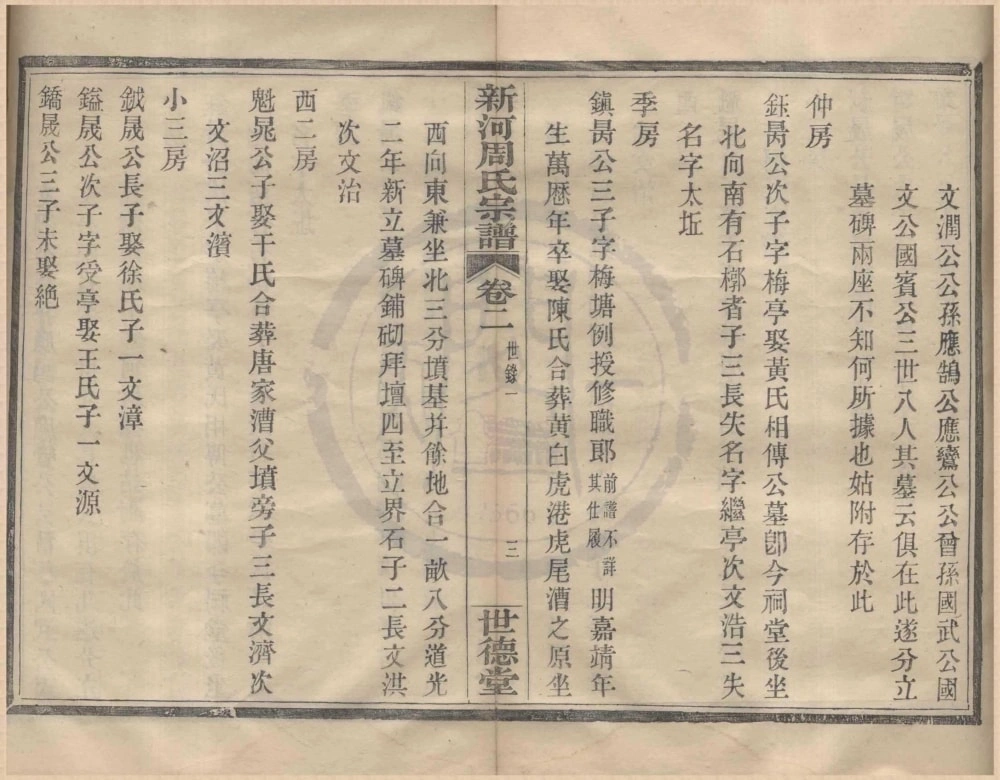 文潤公公孫應鵠公應鸞公公曾孫國武公國
文公國賓公三世八人其墓云俱在此遂分立
墓碑兩座不知何所據也姑附存於此
仲房
鈺昺公次子字梅亭娶黃氏相傳公墓卽今祠堂後坐
北向南有石槨者子三長失名字繼亭次文浩三失
名字太坵
季房
鎮昺公三子字梅塘例授修職郞前譜不詳其仕履明嘉靖年
生萬曆年卒娶陳氏合葬黃白虎港虎尾漕之原坐
西向東兼坐北三分墳基幷餘地合一畝八分道光
二年新立墓碑鋪砌拜壇四至立界石子二長文洪
次文治
新河周氏宗譜 卷二 世錄一 三 世德堂
西二房
魁晁公子娶干氏合葬唐家漕父墳旁子三長文濟次
文沼三文濱
小三房
鉞晟公長子娶徐氏子一文漳
鎰晟公次子字受亭娶王氏子一文源
鐈晟公三子未娶絶